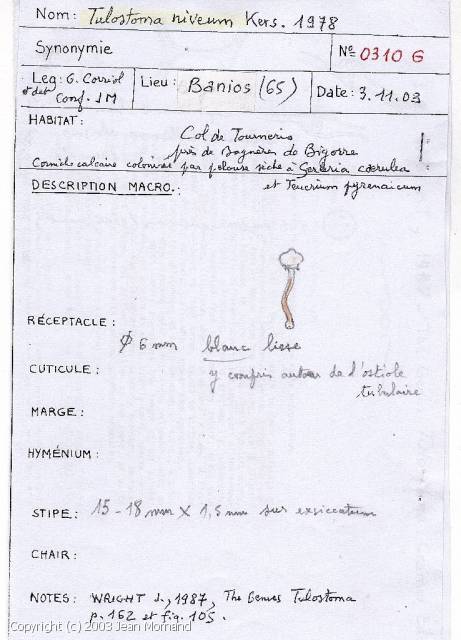 Nom: Tulostoma niveum Kers. 1978
Synonymie
No 0310 G
Leg: G. Corriol
et det Conf. JM
Lieu: Banios (65)
Date: 3.11.03
HABITAT:
Col de
près de Bagnères de Bigorre
Corniche calcaire colonisée par pelouse sèche à Sesleria caerulea
et Teucrium pyrenaicum
DESCRIPTION MACRO.:
RÉCEPTACLE:
Ø 6 mm blanc lisse
CUTICULE: y compris autour de l'ostiole
tubulaire
MARGE:
HYMÉNIUM:
STIPE: 15-18 mm X 1,5 mm sur exsiccatum
CHAIR:
NOTES: WRIGHT J., 1987, The Genus Tulostoma
p. 162 et fig. 105.
Copyright (c) 2003 Jean Mornand